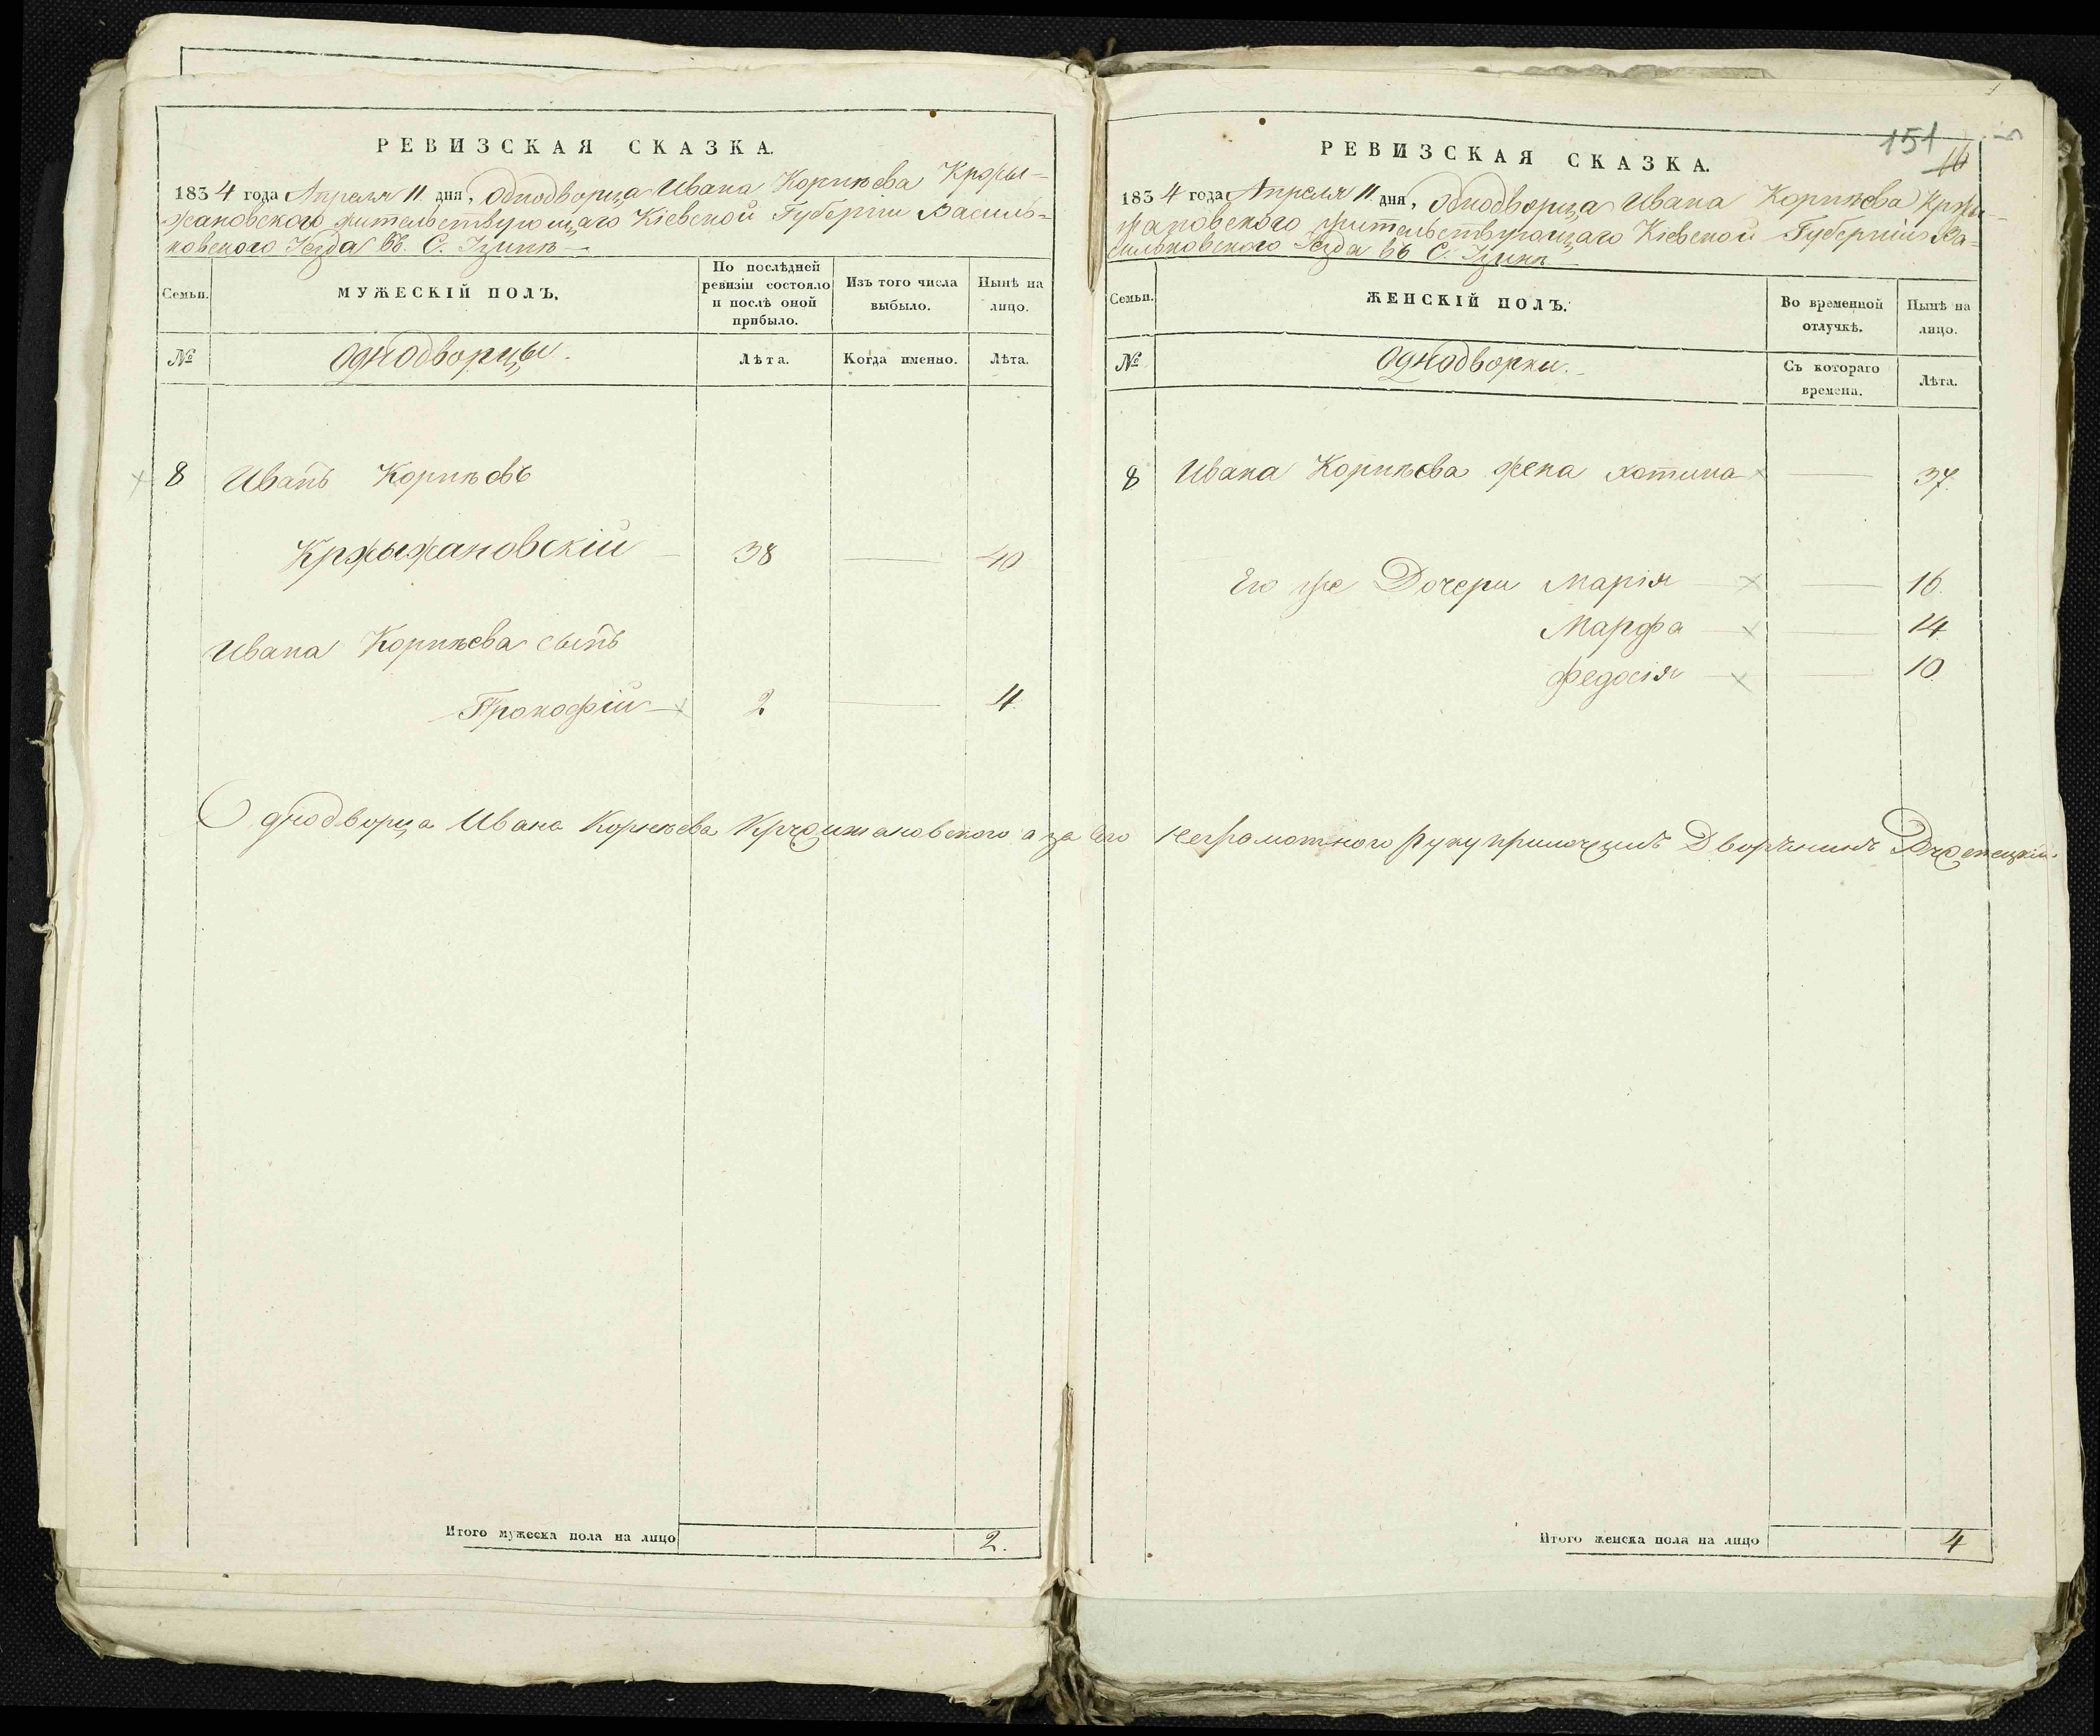 РЕВИЗСКАЯ СКАЗКА.
1834 года Апреля 11 дня, Однодворца Ивана Корнѣева Кржы-
жановского жительствующаго Кіевской Губерніи Василь-
ковского Уезда въ С.
Семьи.
МУЖЕСКІЙ ПОЛЪ.
По послѣдней ревизіи состояло и послѣ оной прибыло.
Изъ того числа выбыло.
Нынѣ на лицо.
№
Однодворцы.
Лѣта.
Когда именно.
Лѣта.
8 Иванъ Корнѣевъ
Кржыжановскій — 38 — 40
Ивана Корнѣева сынъ
Прокофій — 2 — 4
Однодворца Ивана Корнѣева Кржижановского а за его неграмотного руку приложилъ Дворянинъ
Итого мужеска пола на лицо 2.
151
16
РЕВИЗСКАЯ СКАЗКА.
1834 года Апреля 11 дня, Однодворца Ивана Корнѣева Кржы-
жановского жительствующаго Кіевской Губерніи Ва-
сильковского Уезда въ С.
Семьи.
ЖЕНСКІЙ ПОЛЪ.
Во временной отлучкѣ.
Нынѣ на лицо.
№
Однодворки.
Съ котораго времена.
Лѣта.
8 Ивана Корнѣева жена — 37.
Его же Дочери Марія — 16.
Марфа — 14
Федосія — 10
Итого женска пола на лицо 4